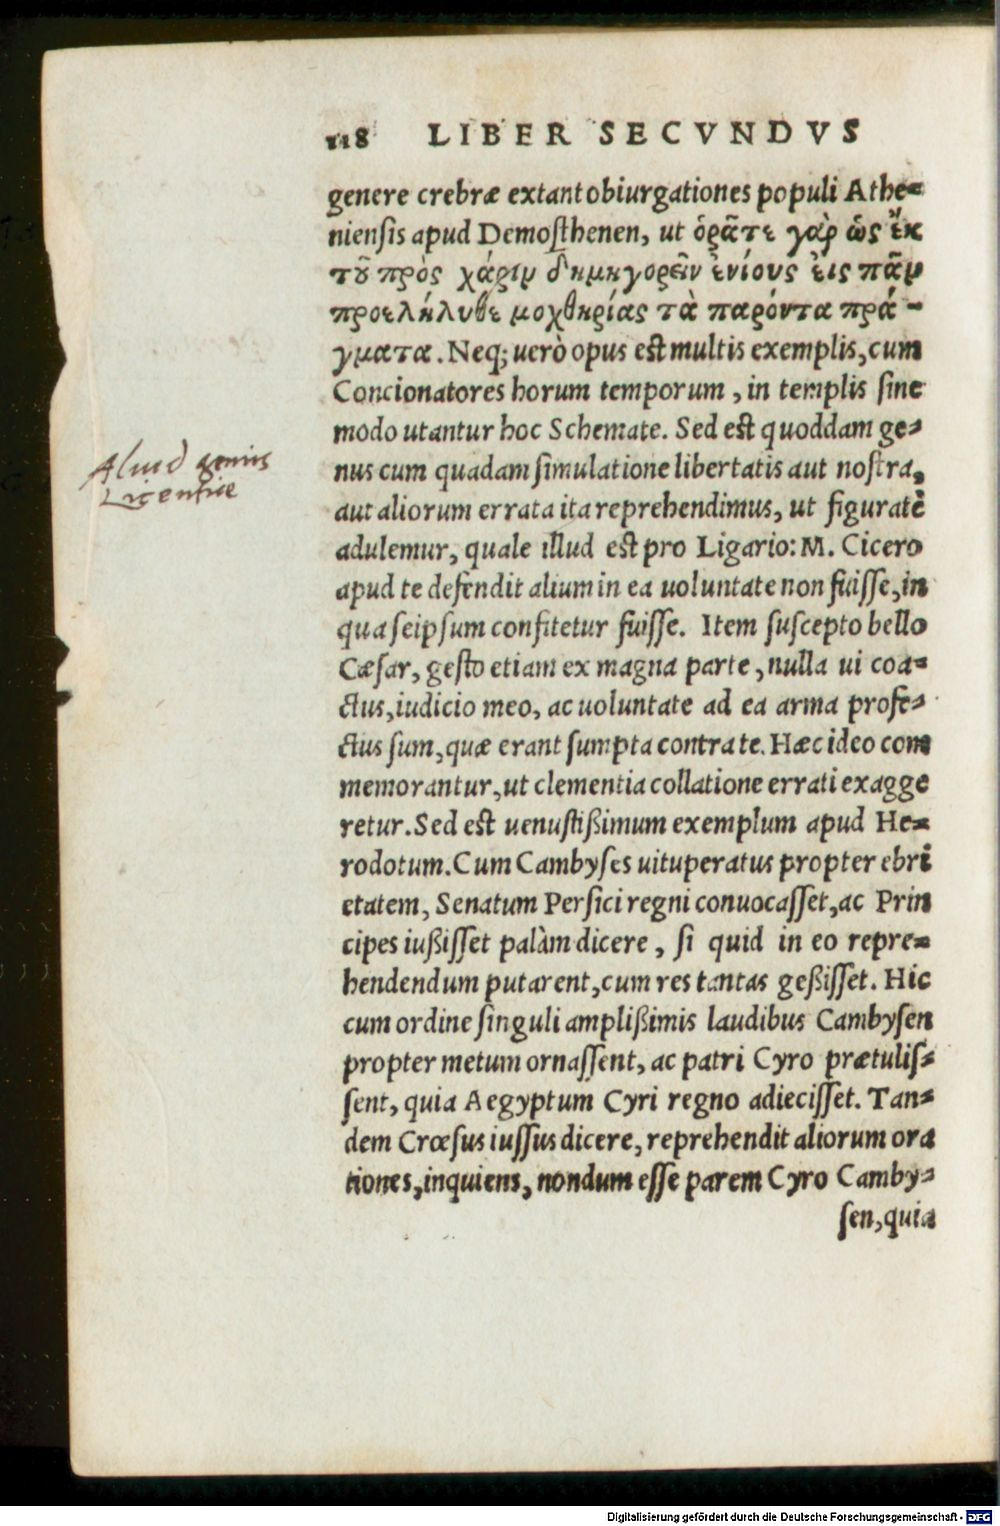 118 LIBER SECVNDVS
genere crebræ extant obiurgationes populi Athe-
niensis apud Demosthenen, ut ὁρᾶτε γὰρ ὡς ἐκ
τȣ͂ πρὸς χάριμ δημηγορεῖν ἐνίους εἰς πᾶμ
προελήλυθε μοχθηρίας τὰ παρόντα πρά-
γματα. Neq; uerò opus est multis exemplis, cum
Concionatores horum temporum, in templis sine
modo utantur hoc Schemate. Sed est quoddam ge-
Aliud genus
Licentiae
nus cum quadam simulatione libertatis aut nostra,
aut aliorum errata ita reprehendimus, ut figuratè
adulemur, quale illud est pro Ligario: M. Cicero
apud te defendit alium in ea uoluntate non fuisse, in
qua seipsum confitetur fuisse. Item suscepto bello
Cæsar, gesto etiam ex magna parte, nulla ui coa-
ctus, iudicio meo, ac uoluntate ad ea arma profe-
ctus sum, quæ erant sumpta contra te. Hæc ideo com
memorantur, ut clementia collatione errati exagge
retur. Sed est uenustißimum exemplum apud He-
rodotum. Cum Cambyses uituperatus propter ebri
etatem, Senatum Persici regni conuocasset, ac Prin
cipes iußisset palàm dicere, si quid in eo repre-
hendendum putarent, cum res tantas geßisset. Hic
cum ordine singuli amplißimis laudibus Cambysen
propter metum ornassent, ac patri Cyro prætulis-
sent, quia Aegyptum Cyri regno adiecisset. Tan-
dem Crœsus iussus dicere, reprehendit aliorum ora
tiones, inquiens, nondum esse parem Cyro Camby-
sen, quia
Digitalisierung gefördert durch die Deutsche Forschungsgemeinschaft - DFG